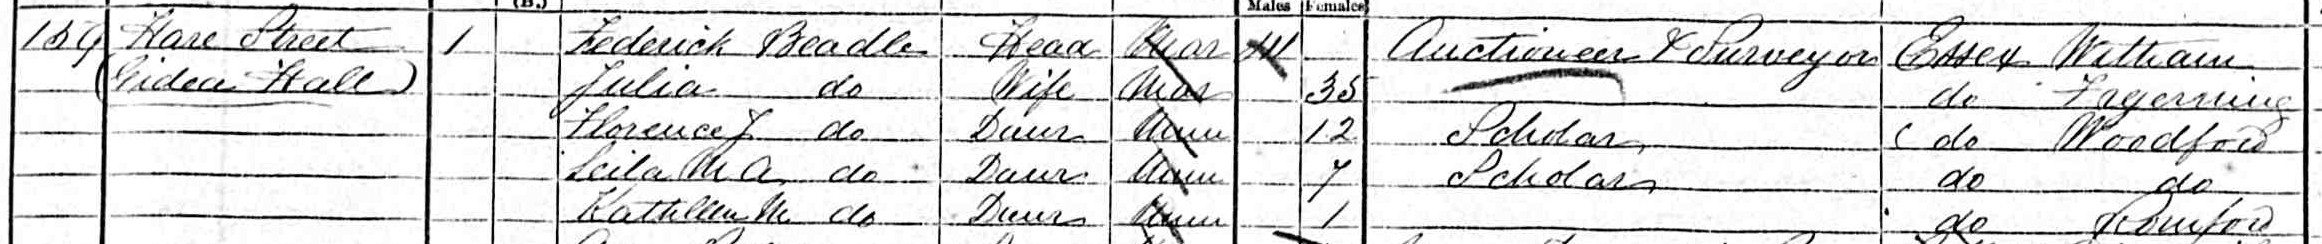 (B.) Males Females
159 Hare Street 1 Frederick Beadle Head Mar 41 Auctioneer & Surveyor Essex Witham
(Gidea Hall) Julia do Wife Mar 35 do Fryerning
Florence J do Daur Unm 12 Scholar do Woodford
Leila M A do Daur Unm 7 Scholar do do
Kathleen M do Daur Unm 1 do Romford